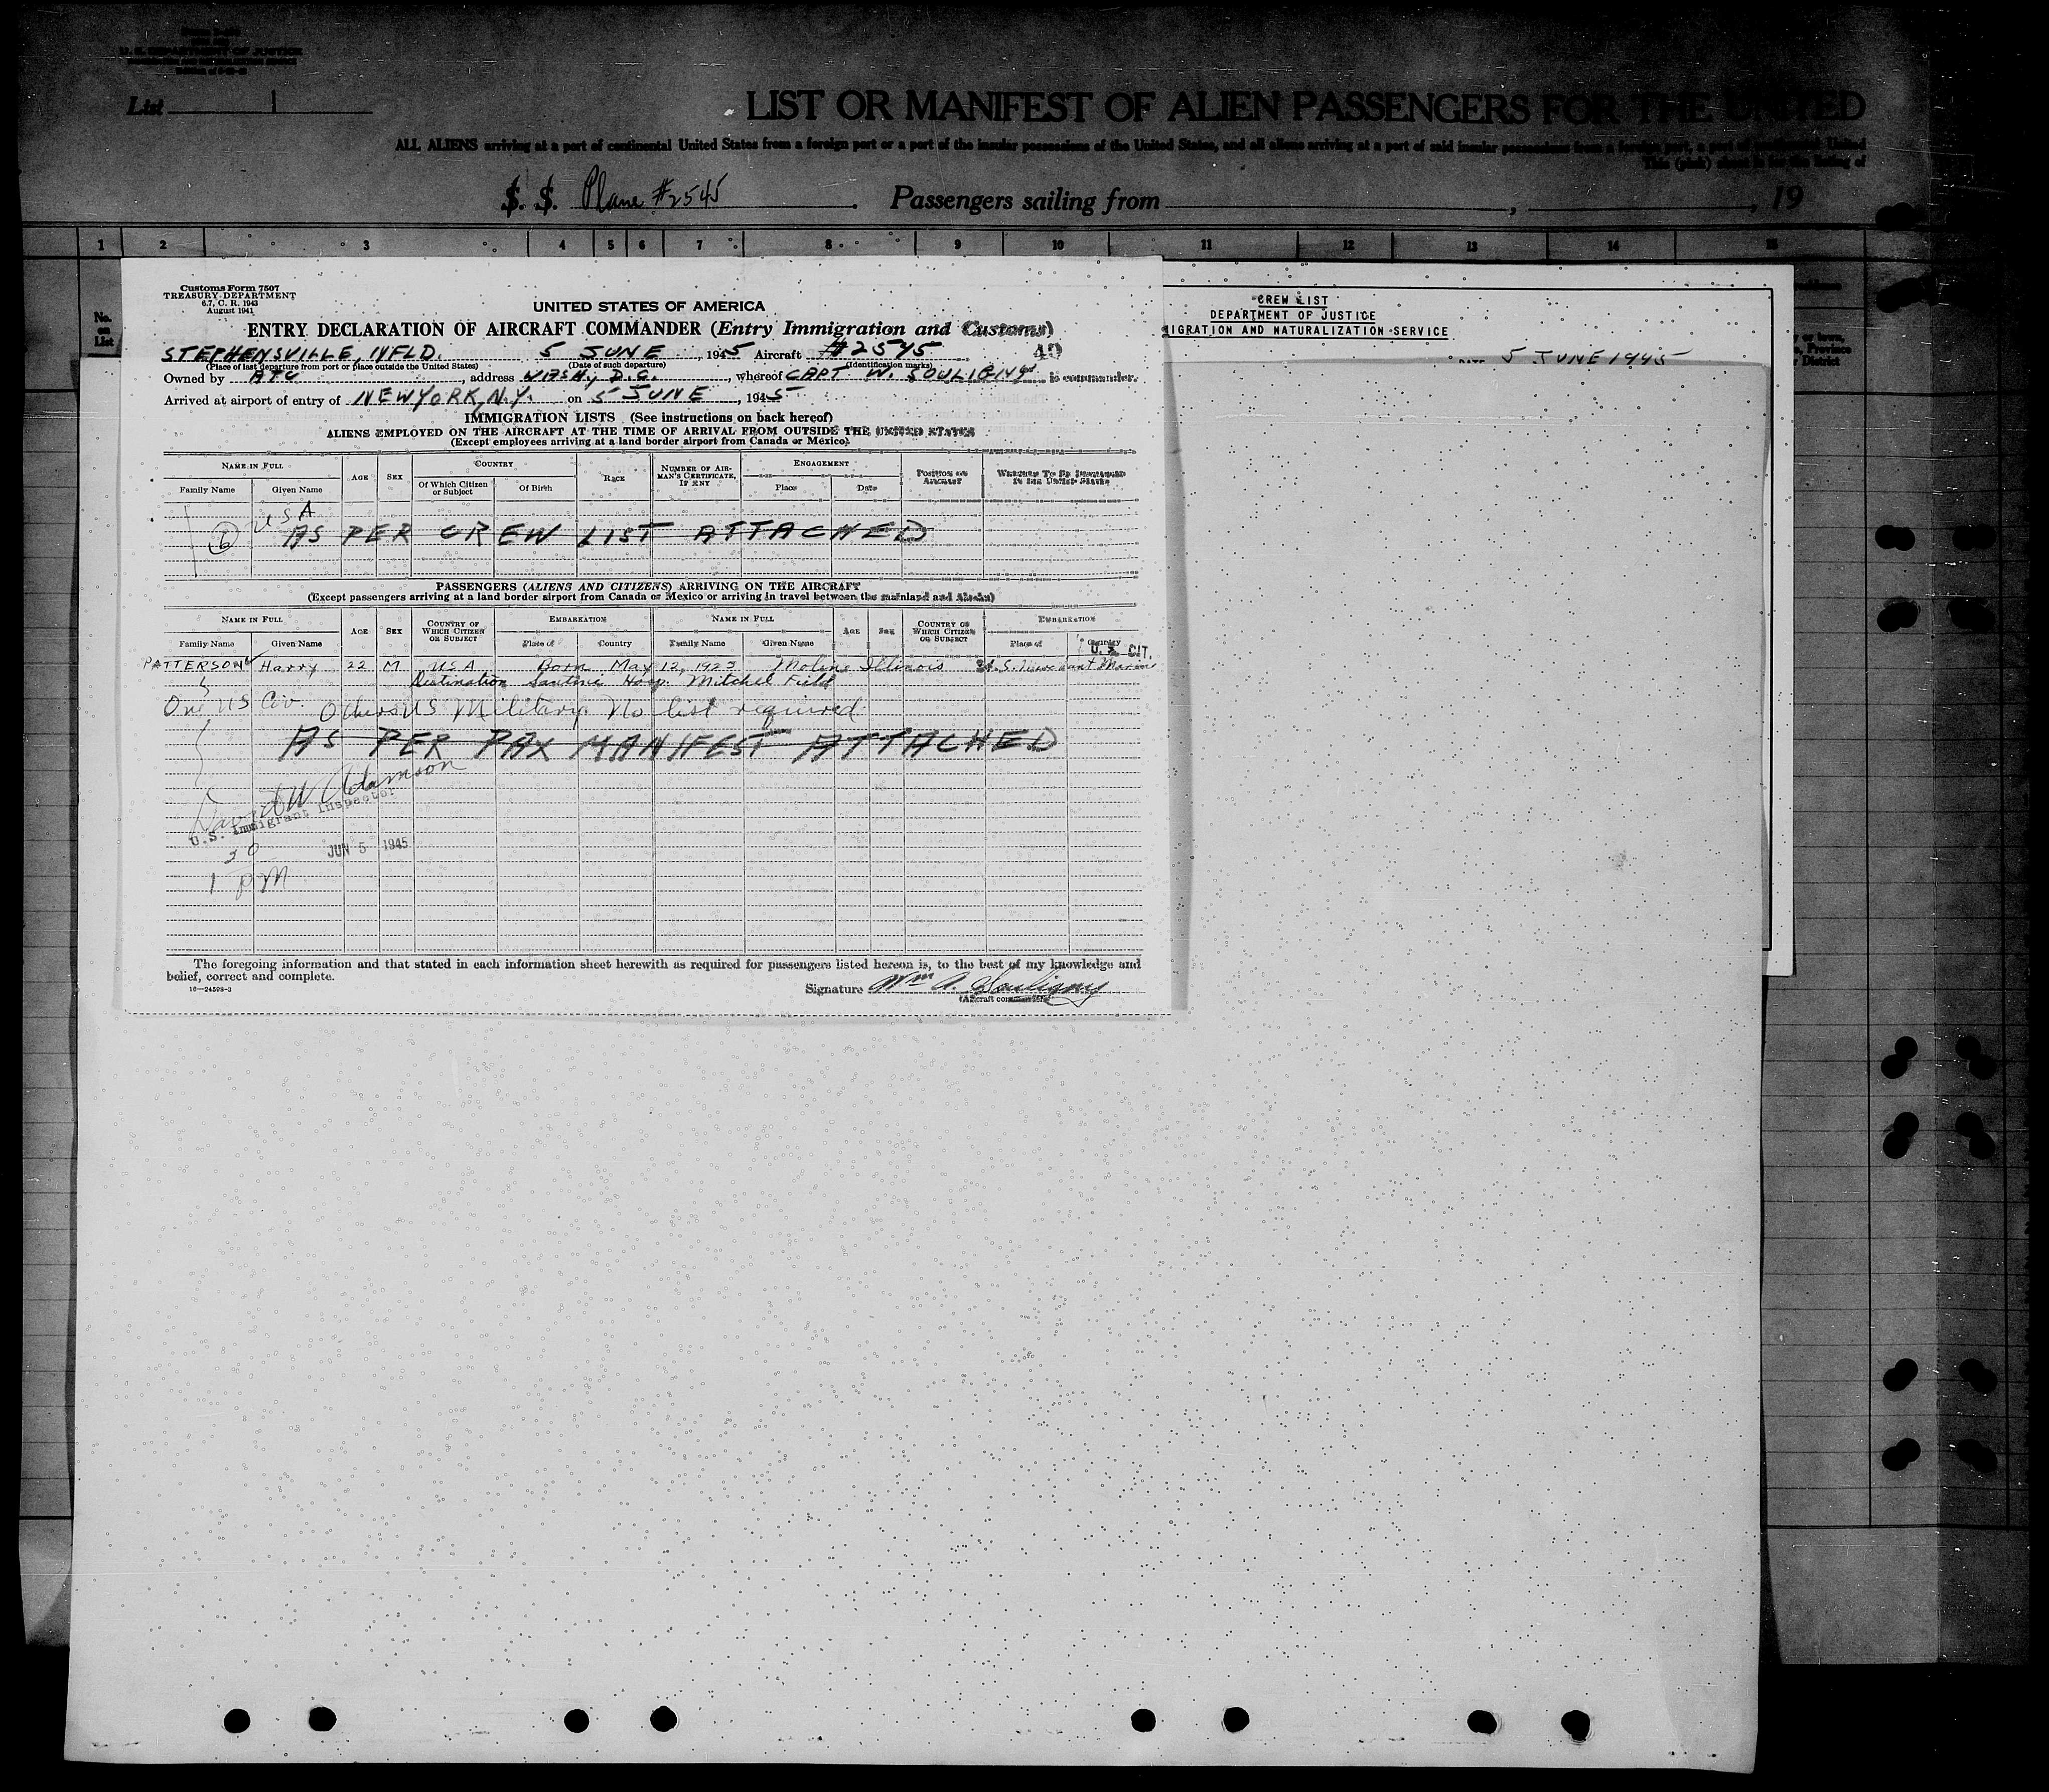 U. S. DEPARTMENT OF JUSTICE
List 1
LIST OR MANIFEST OF ALIEN PASSENGERS FOR THE UNITED
ALL ALIENS arriving at a port of continental United States from a foreign port or a port of the insular possessions of the United States, and all aliens arriving at a port of said insular possessions from a foreign port, a port of continental United
This (pink) sheet is for the listing of
S. S. Plane #2545 Passengers sailing from , , 19
1 2 3 4 5 6 7 8 9 10 11 12 13 14 15
No. on List
Customs Form 7507
TREASURY DEPARTMENT
6.7, C. R. 1943
August 1941
UNITED STATES OF AMERICA
ENTRY DECLARATION OF AIRCRAFT COMMANDER (Entry Immigration and Customs)
STEPHENSVILLE, NFLD. 5 JUNE, 1945 Aircraft #2545 40
(Place of last departure from port or place outside the United States) (Date of such departure) (Identification marks)
Owned by ATC, address WASH., D.C., whereof CAPT W. SOULIGNY is commander.
Arrived at airport of entry of NEW YORK, N.Y. on 5 JUNE, 1945
IMMIGRATION LISTS (See instructions on back hereof)
ALIENS EMPLOYED ON THE AIRCRAFT AT THE TIME OF ARRIVAL FROM OUTSIDE THE UNITED STATES
(Except employees arriving at a land border airport from Canada or Mexico)
NAME IN FULL AGE SEX COUNTRY RACE NUMBER OF AIRMAN'S CERTIFICATE, IF ANY ENGAGEMENT POSITION ON AIRCRAFT WHETHER TO BE DISCHARGED IN THE UNITED STATES
Family Name Given Name Of Which Citizen or Subject Of Birth Place Date
USA
6 AS PER CREW LIST ATTACHED
PASSENGERS (ALIENS AND CITIZENS) ARRIVING ON THE AIRCRAFT
(Except passengers arriving at a land border airport from Canada or Mexico or arriving in travel between the mainland and Alaska)
NAME IN FULL AGE SEX COUNTRY OF WHICH CITIZEN OR SUBJECT EMBARKATION NAME IN FULL AGE SEX COUNTRY OF WHICH CITIZEN OR SUBJECT EMBARKATION
Family Name Given Name Place of Country Family Name Given Name Place of Country
U. S. CIT.
PATTERSON Harry 22 M USA Born May 12, 1923 Moline Illinois U.S. Merchant Marine
Destination Santini Hosp. Mitchel Field
One US Civ. Others US Military No list required
AS PER PAX MANIFEST ATTACHED
David W Adamson
U.S. Immigrant Inspector
30
JUN 5 1945
1 PM
The foregoing information and that stated in each information sheet herewith as required for passengers listed hereon is, to the best of my knowledge and
belief, correct and complete.
16—24598-3
Signature Wm A. Souligny
(Aircraft commander)
CREW LIST
DEPARTMENT OF JUSTICE
IGRATION AND NATURALIZATION SERVICE
DATE 5 JUNE 1945